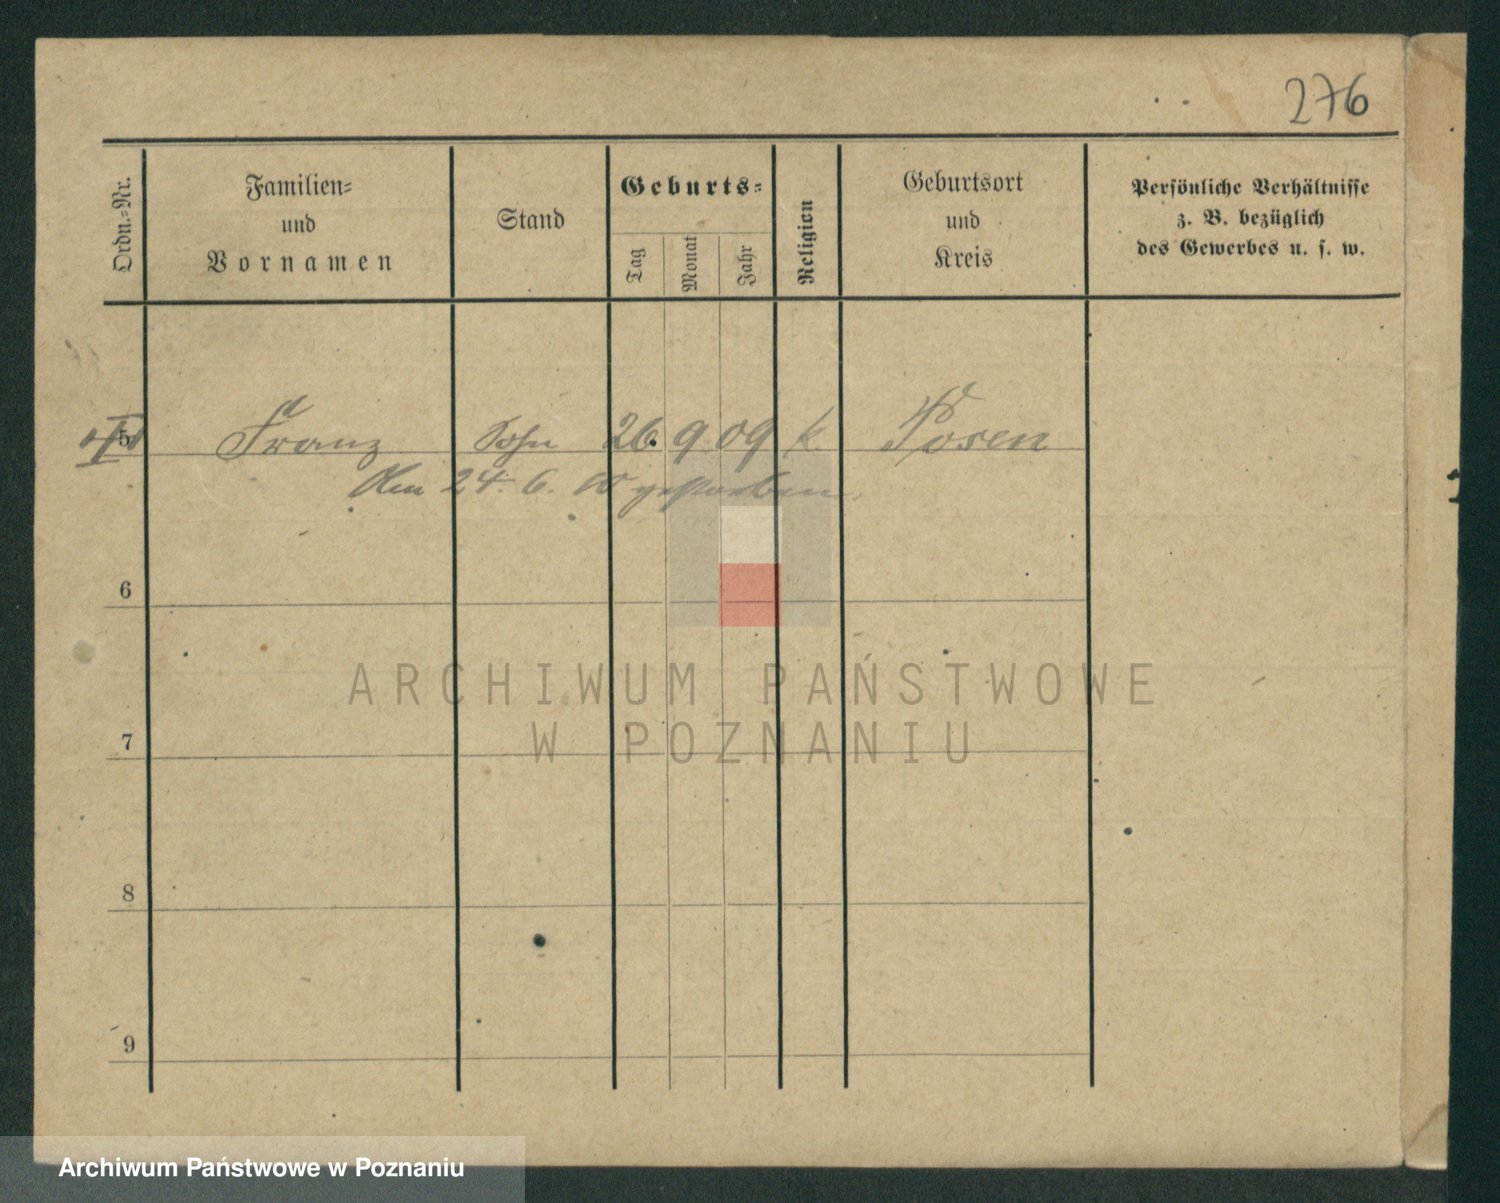 276
Ordn.=Nr.
Familien=
und
Vornamen
Stand
Geburts=
Tag
Monat
Jahr
Religion
Geburtsort
und
Kreis
Persönliche Verhältnisse
z. B. bezüglich
des Gewerbes u. s. w.
5 Franz Sohn 26. 9 09 k. Posen
Am 24. 6. 10 gestorben.
6
7
8
9
ARCHIWUM PAŃSTWOWE
W POZNANIU
Archiwum Państwowe w Poznaniu